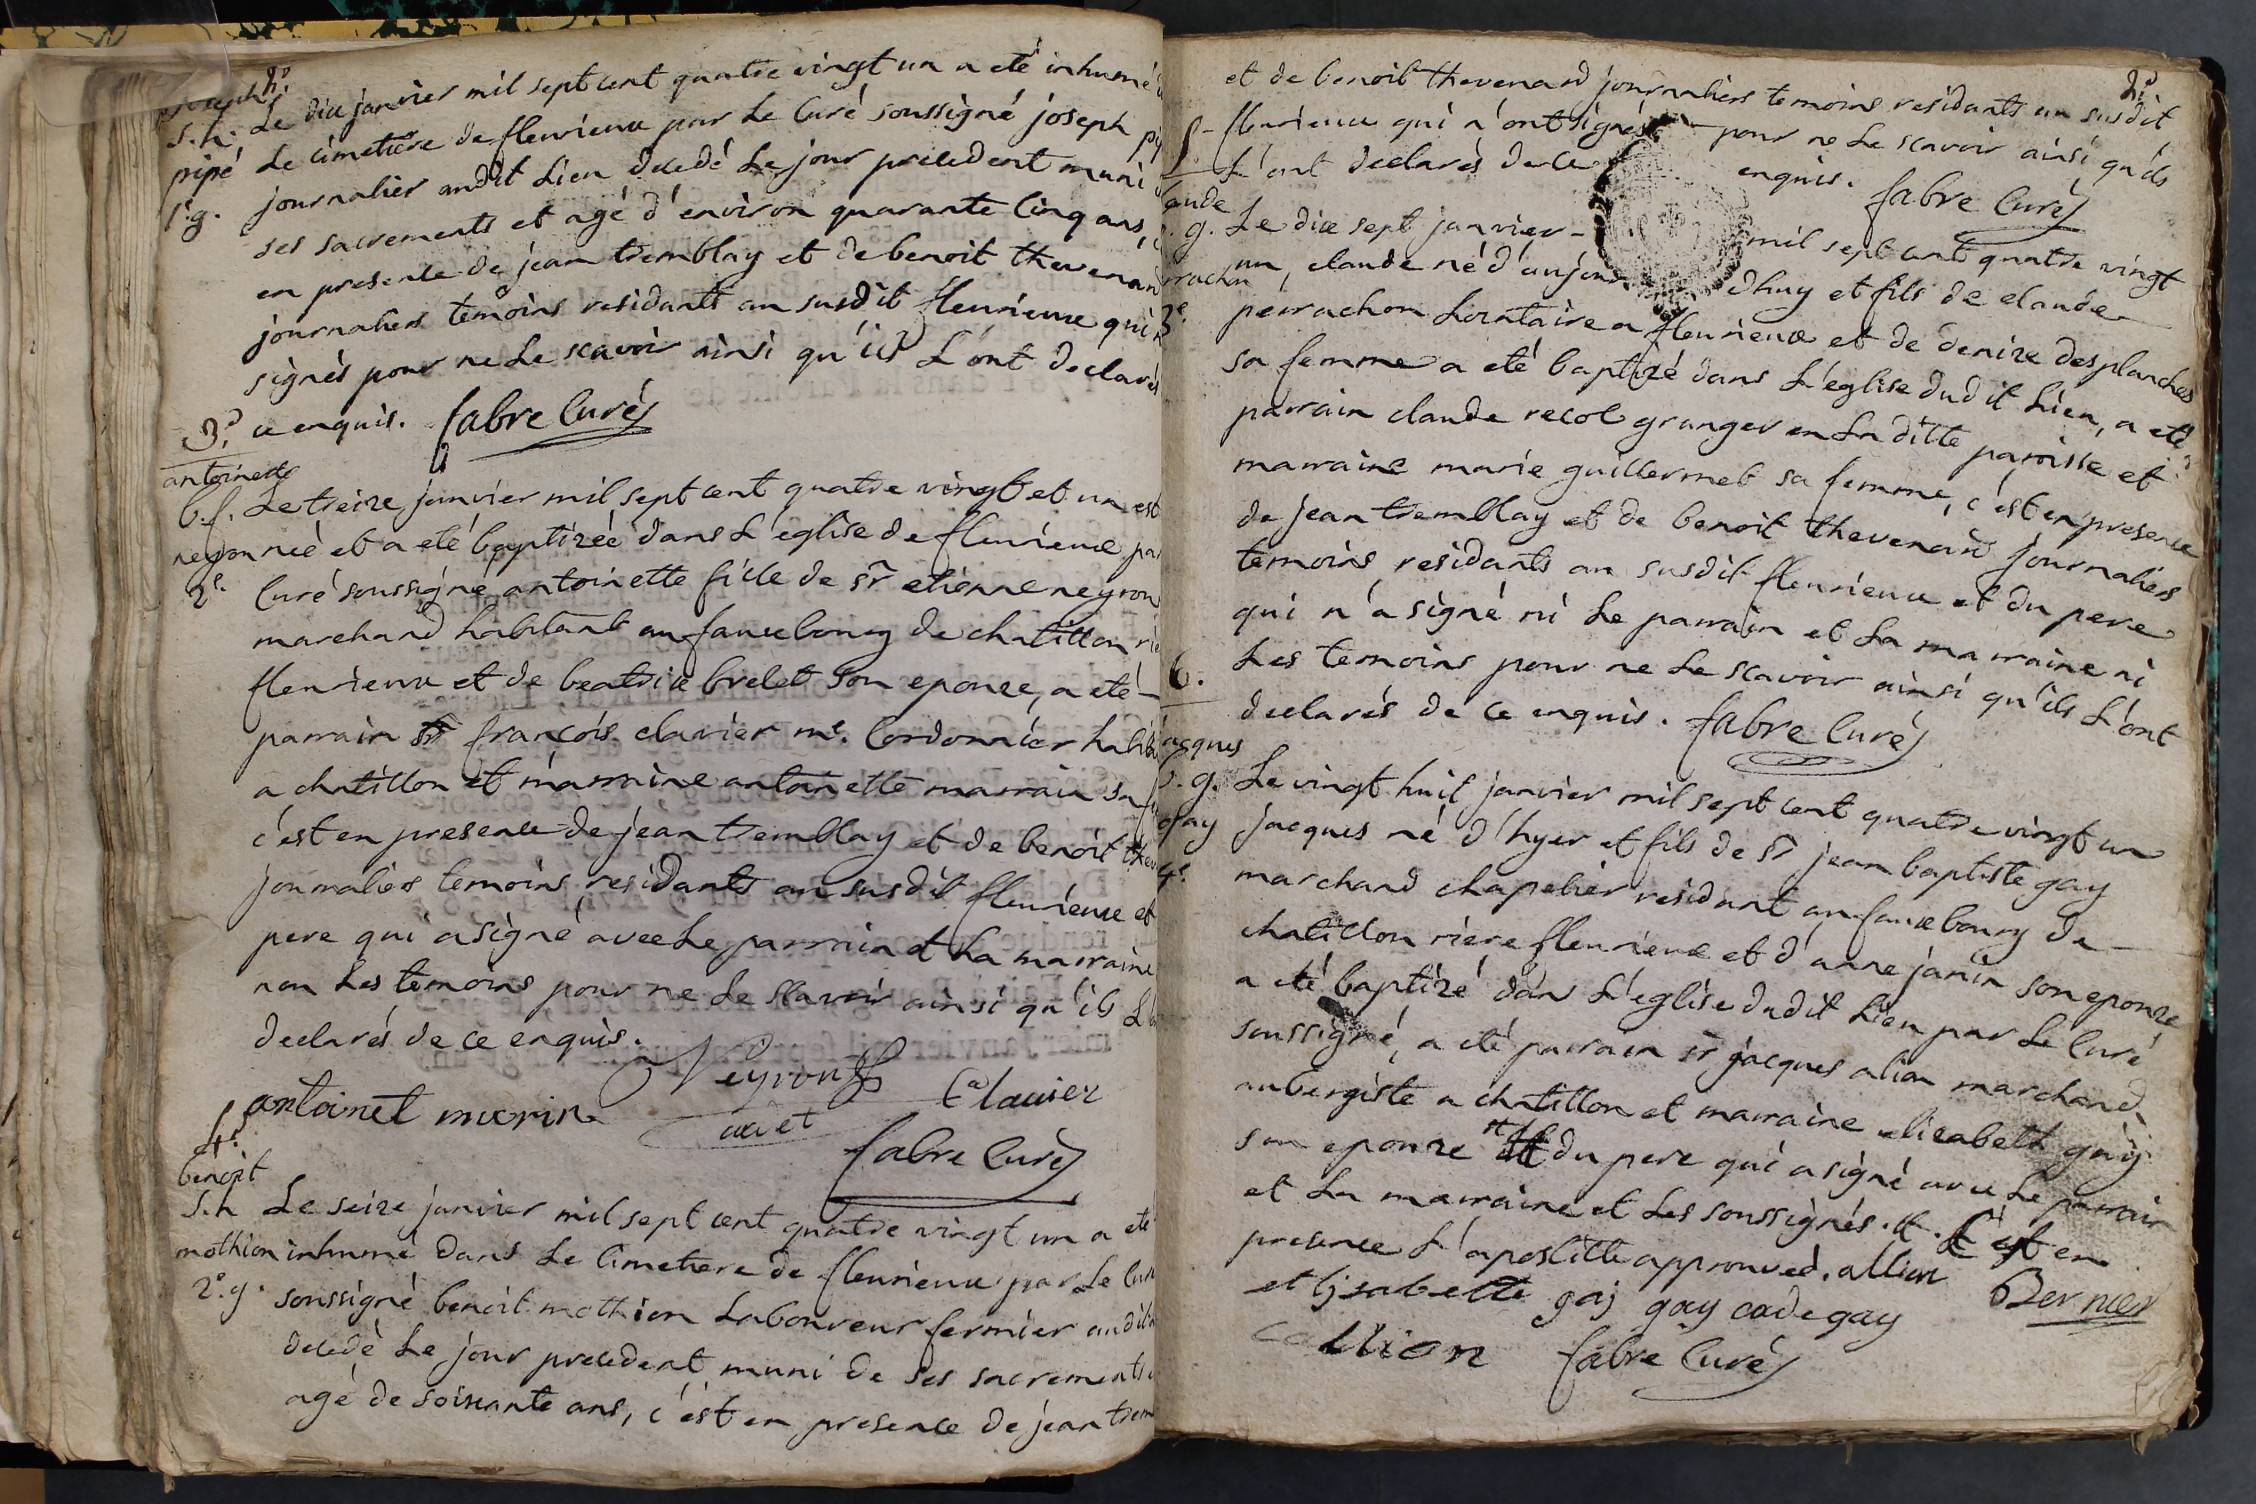 joseph 2.e
S. h. Le dix janvier mil sept cent quatre vingt un a eté inhumé
pipé Le cimetiere de fleurieux par Le Curé soussigné joseph
1.g. journalier audit Lieu decedé Le jour precedent muni
ses sacrements et agé d'environ quarante Cinq ans,
en presence de jean tremblay et de benoit thevenard
journaliers temoins residants au susdit fleurieux qui
signés pour ne Le scavoir ainsi qu'ils L'ont declarés
3.e ce enquis. fabre Curé
antoinette
b.f. Le treize janvier mil sept cent quatre vingt et un est
neyron neé et a eté baptizeé dans L'eglise de fleurieux par
2.e Curé soussigné antoinette fille de sr etienne neyron
marchand habitant au fauxbourg de chatillon
fleurieux et de beatrix brelet son epouze, a eté
parrain sr françois clavier me. Cordonnier
a chatillon et marraine antoinette marrain sa
c'est en presence de jean tremblay et de benoit
journaliers temoins residants au susdit fleurieux et
pere qui a signé avec Le parrain et La marraine
non Les temoins pour ne Le scavoir ainsi qu'ils
declarés de ce enquis.
Neyron
Clavier
antoinet murin
fabre Curé
4.e
benoit
S. h Le seize janvier mil sept cent quatre vingt un a eté
mothion inhumé dans Le Cimetiere de fleurieux par Le Curé
2.e g. soussigné benoit mothion Laboureur fermier audit
decedé Le jour precedent muni de ses sacrements
agé de soixante ans, c'est en presence de jean
2.e
et de benoit thevenard journaliers temoins residants au susdit
5 fleurieux qui n'ont signés pour ne Le scavoir ainsi qu'ils
L'ont declarés de ce enquis. fabre Curé
g. Le dix sept janvier mil sept cent quatre vingt
un, claude né d'aujourdhuy et fils de claude
3.e perrachon Locataire a fleurieux et de denize desplanches
sa femme a eté baptizé dans L'eglise dudit Lien, a eté
parrain claude recol granger en La ditte paroisse et
marraine marie guillermet sa femme, c'est en presence
de jean tremblay et de benoit thevenard journaliers
temoins residants au susdit fleurieux et du pere
qui n'a signé ni Le parrain et La marraine ni
6. Les temoins pour ne Le scavoir ainsi qu'ils L'ont
declarés de ce enquis. fabre Curé
jacques
g. Le vingt huit janvier mil sept cent quatre vingt un
gay jacques né d'hyer et fils de sr jean baptiste gay
4.e marchand chapelier residant au fauxbourg de
chatillon riere fleurieux et d'anne janin son epouze
a eté baptizé dans L'eglise dudit Lieu par Le Curé
soussigné, a eté parrain sr jacques alion marchand
aubergiste a chatillon et marraine elizabeth gay
son epouze et du pere qui a signé avec Le parrain
et La marraine et Les soussignés. C'est en
presence L'apostille approuveé. allion Bernier
elisabette gaj gay cadegay
allion fabre Curé